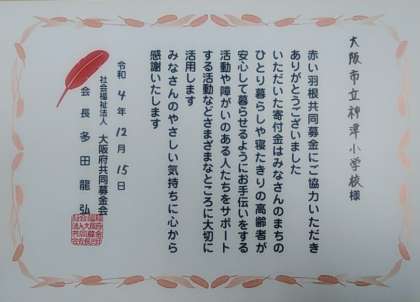 大阪市立神津小学校様
赤い羽根共同募金にご協力いただき
ありがとうございました
いただいた寄付金はみなさんのまちの
ひとり暮らしや寝たきりの高齢者が
安心して暮らせるようにお手伝いをする
活動や障がいのある人たちをサポート
する活動などさまざまなところに大切に
活用します
みなさんのやさしい気持ちに心から
感謝いたします
令和4年12月15日
社会福祉法人 大阪府共同募金会
会長 多田龍弘